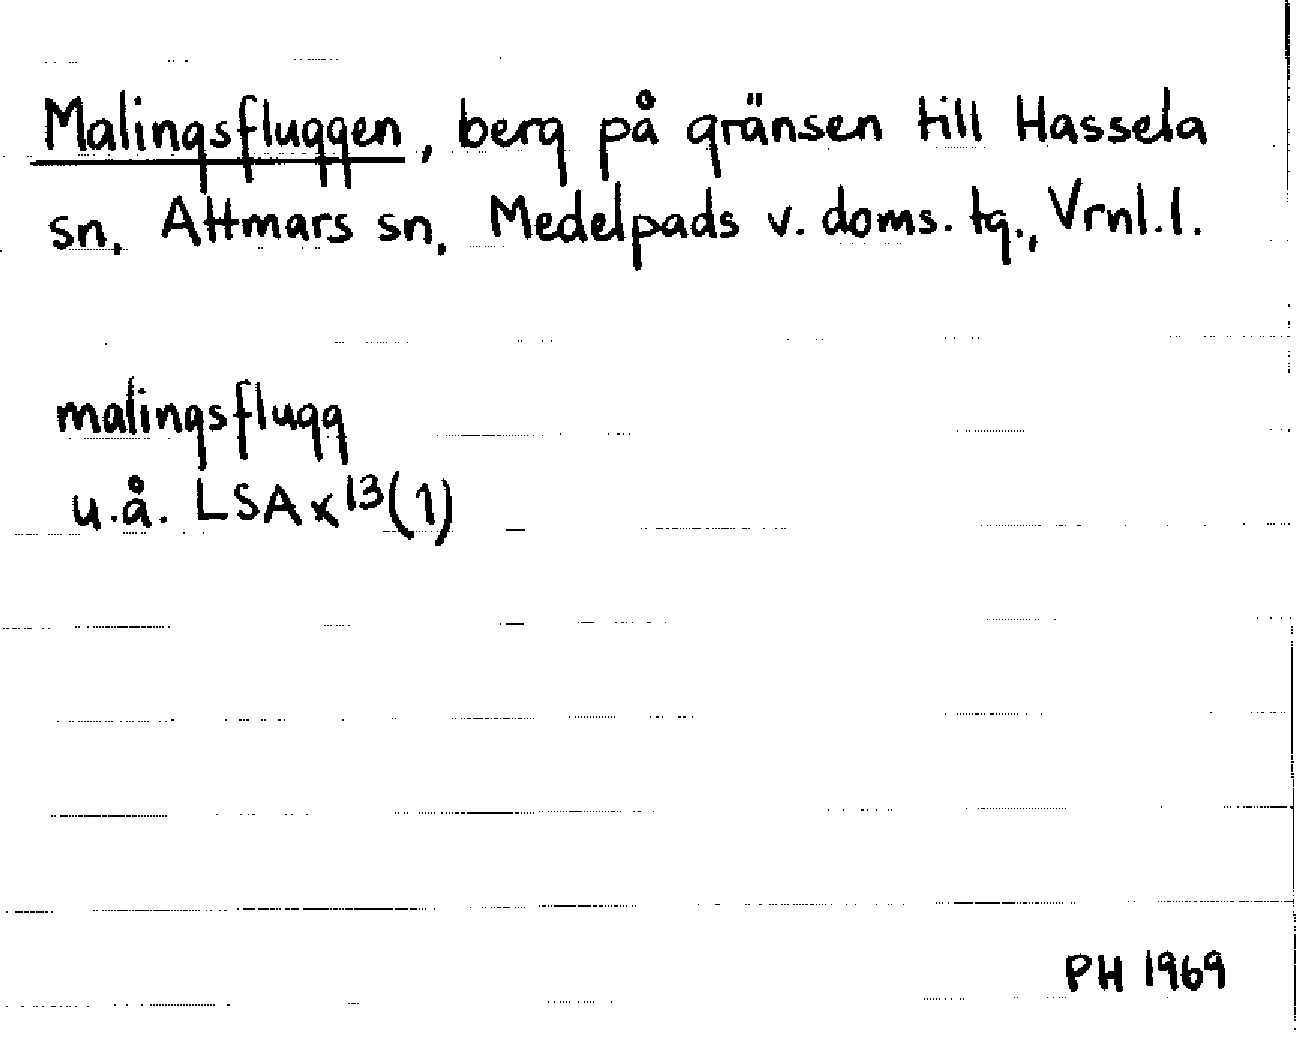 Malingsfluggen, berg på gränsen till Hassela
sn, Attmars sn, Medelpads v. doms. tg., Vrnl. l.
malingsflugg
u.å. LSA x¹³(1)
PH 1969